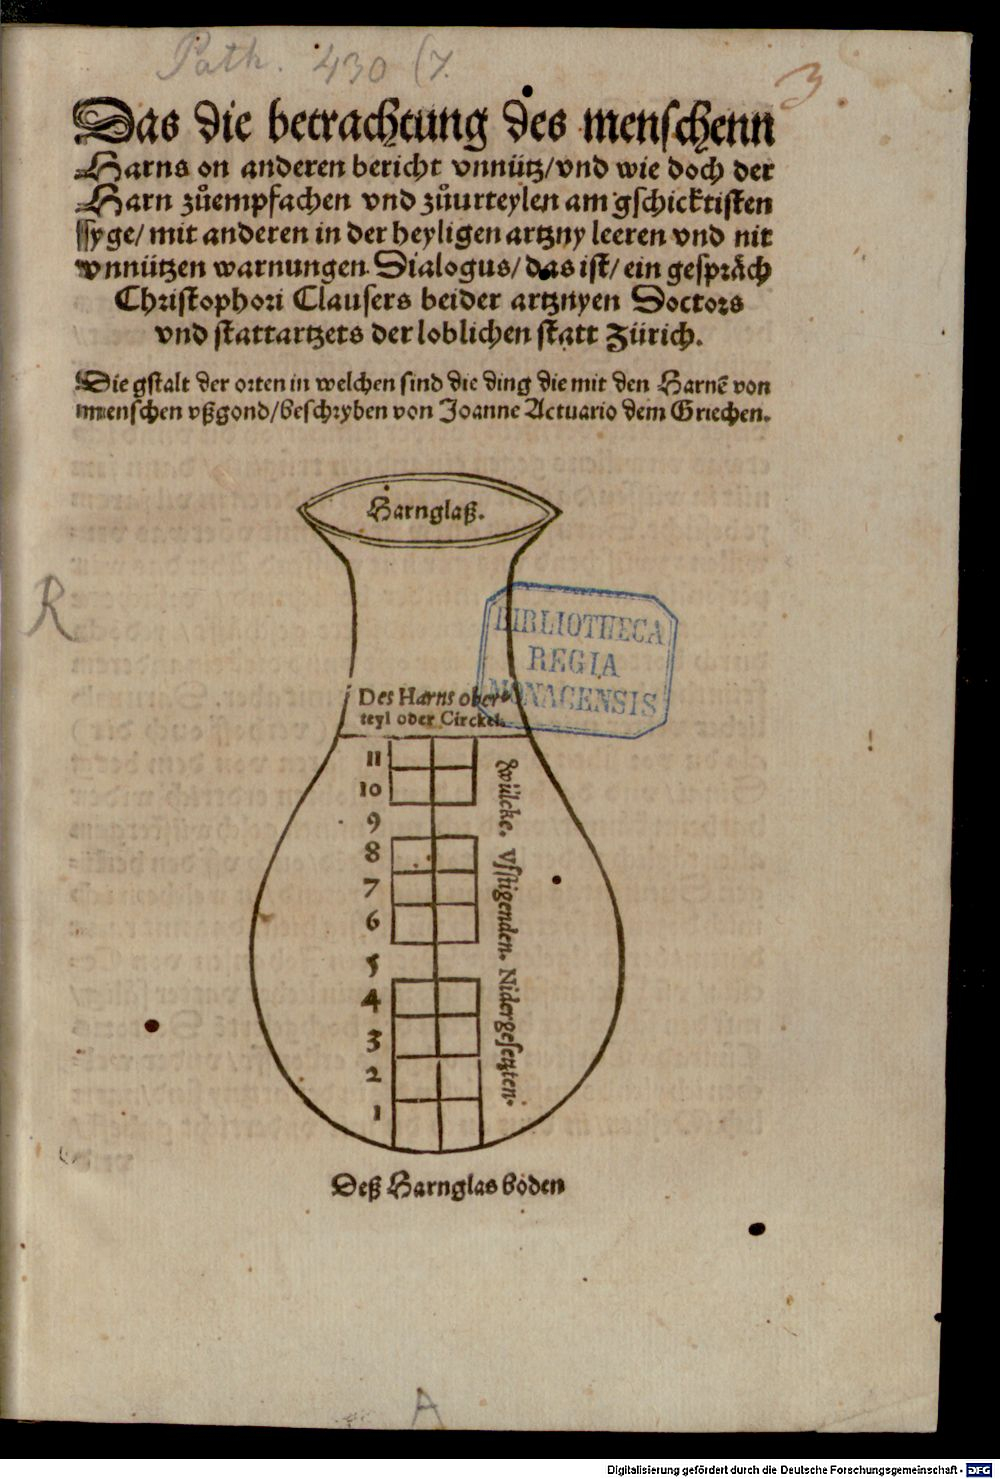 Path. 430 (7.
3
Das die betrachtung des menschenn
Harns on anderen bericht vnnütz/vnd wie doch der
Harn zůempfachen vnd zůurteylen am gschicktisten
syge/ mit anderen in der heyligen artzny leeren vnd nit
vnnützen warnungen. Dialogus/ das ist/ ein gespräch
Christophori Clausers beider artznyen Doctors
vnd stattartzets der loblichen statt Zürich.
Die gstalt der orten in welchen sind die ding die mit den Harnē von
menschen vßgond/beschryben von Joanne Actuario dem Griechen.
Harnglaß.
R
BIBLIOTHECA
REGIA
MONACENSIS
Des Harns ober⸗
teyl oder Circkel.
11
10
9
8
7
6
5
4
3
2
1
Wülcke. Vfstigenden. Nidergesetzten.
Deß Harnglas boden
A
Digitalisierung gefördert durch die Deutsche Forschungsgemeinschaft - DFG